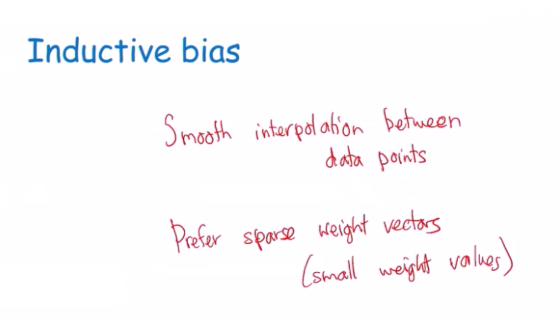 Inductive bias
Smooth interpolation between
data points
Prefer sparse weight vectors
(small weight values)